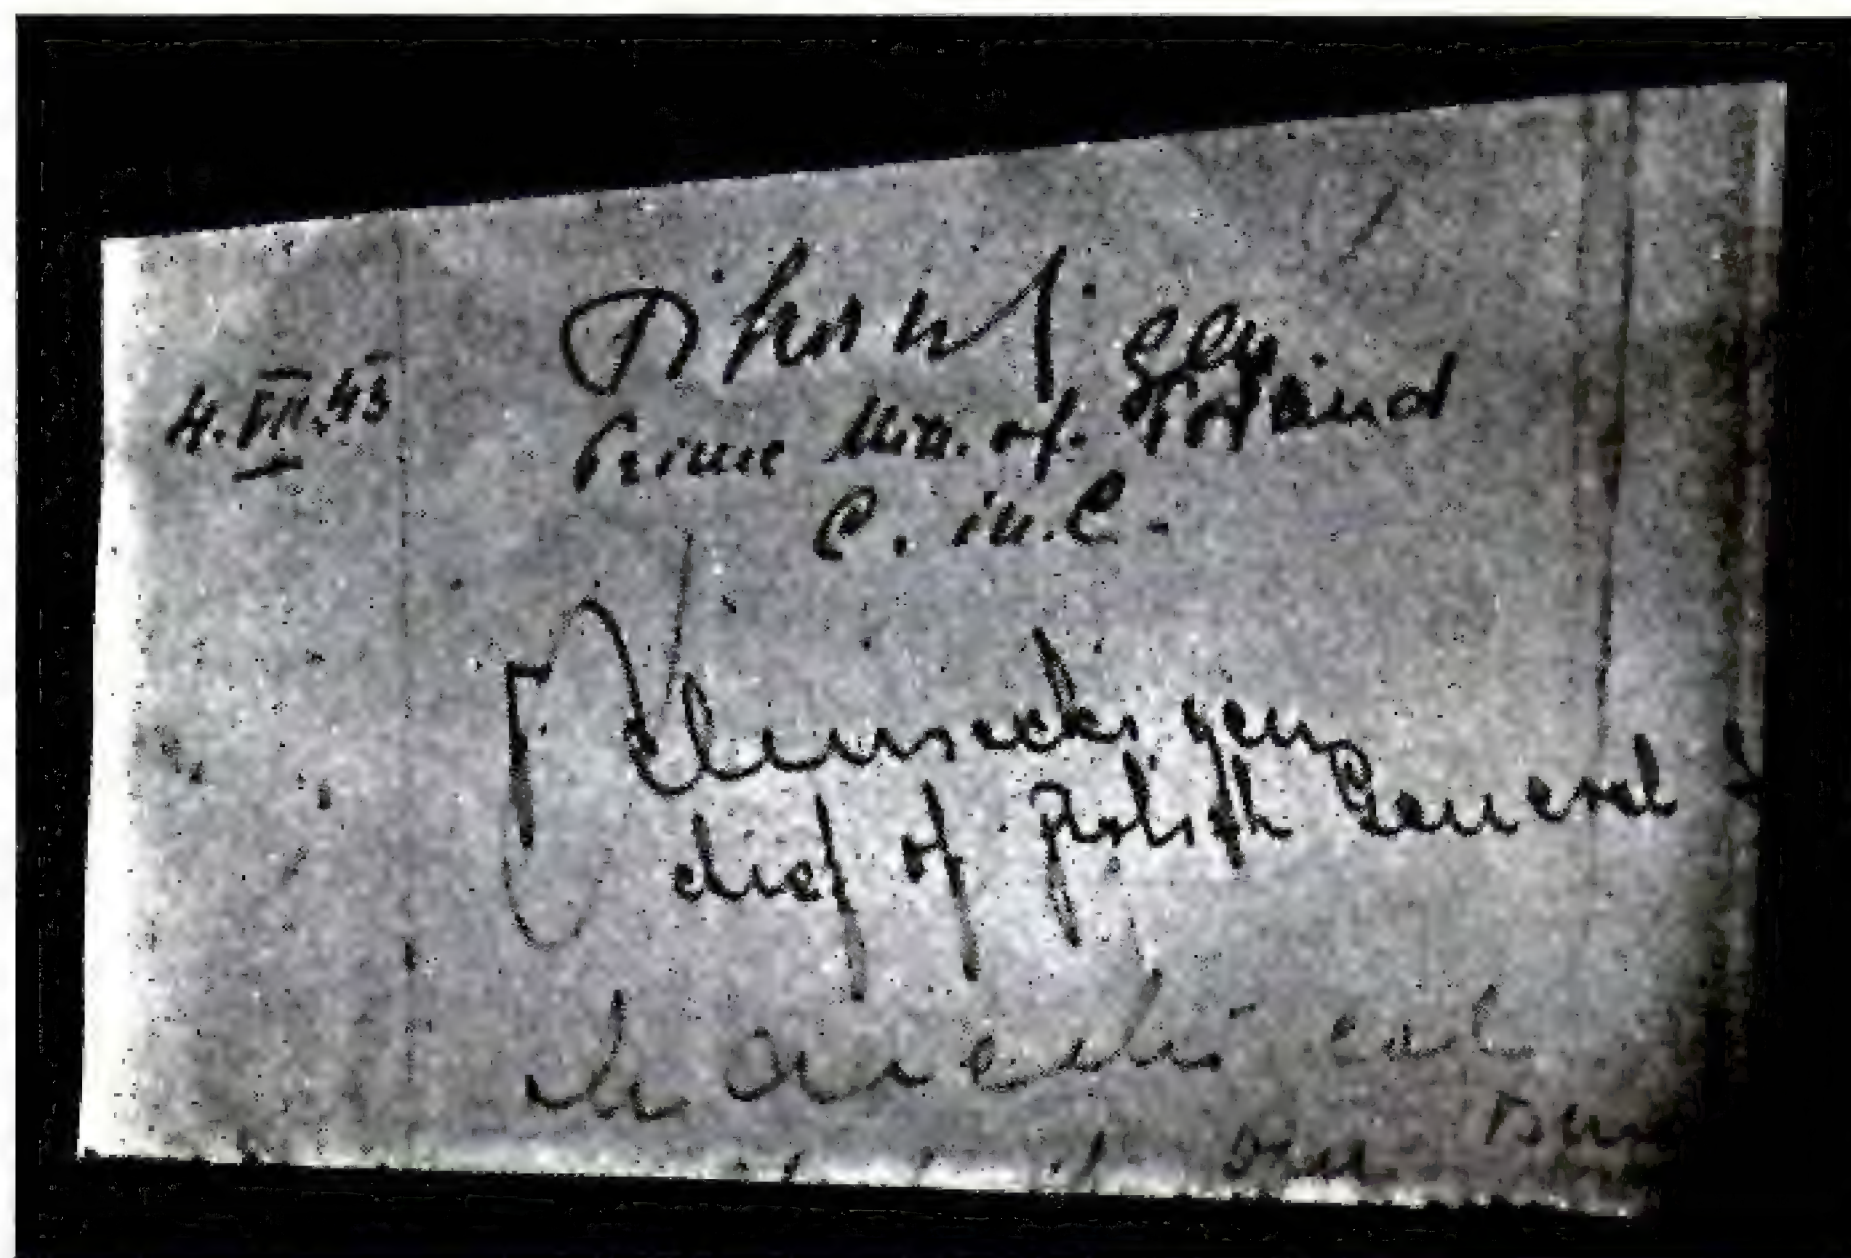 4.VII.43
Sikorski gen.
Prime Min. of Poland
C. in. C.
Klimecki gen.
chief of Polish General
Marecki col.